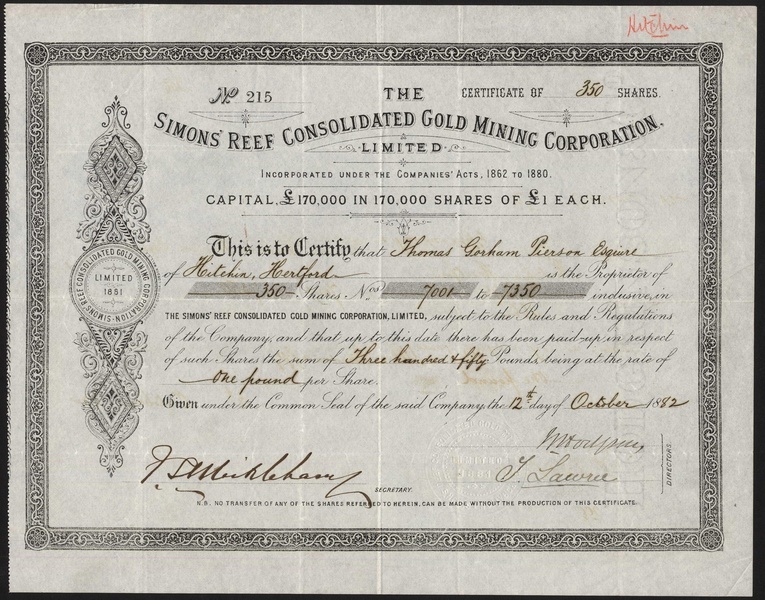 Hitchin
No 215
THE
CERTIFICATE OF 350 SHARES.
SIMONS' REEF CONSOLIDATED GOLD MINING CORPORATION,
LIMITED
INCORPORATED UNDER THE COMPANIES' ACTS, 1862 TO 1880.
CAPITAL, £170,000 IN 170,000 SHARES OF £1 EACH.
This is to Certify that Thomas Gorham Pierson Esquire
of Hitchin, Hertford is the Proprietor of
350 Shares Nos. 7001 to 7350 inclusive, in
THE SIMONS' REEF CONSOLIDATED GOLD MINING CORPORATION, LIMITED, subject to the Rules and Regulations
of the Company, and that up to this date there has been paid-up in respect
of such Shares the sum of Three hundred & fifty Pounds being at the rate of
One pound per Share.
Given under the Common Seal of the said Company, the 12th day of October 1882
SIMONS' REEF CONSOLIDATED GOLD MINING CORPORATION
LIMITED
1881
T. Lawrie
DIRECTORS.
SECRETARY.
N.B. NO TRANSFER OF ANY OF THE SHARES REFERRED TO HEREIN, CAN BE MADE WITHOUT THE PRODUCTION OF THIS CERTIFICATE.